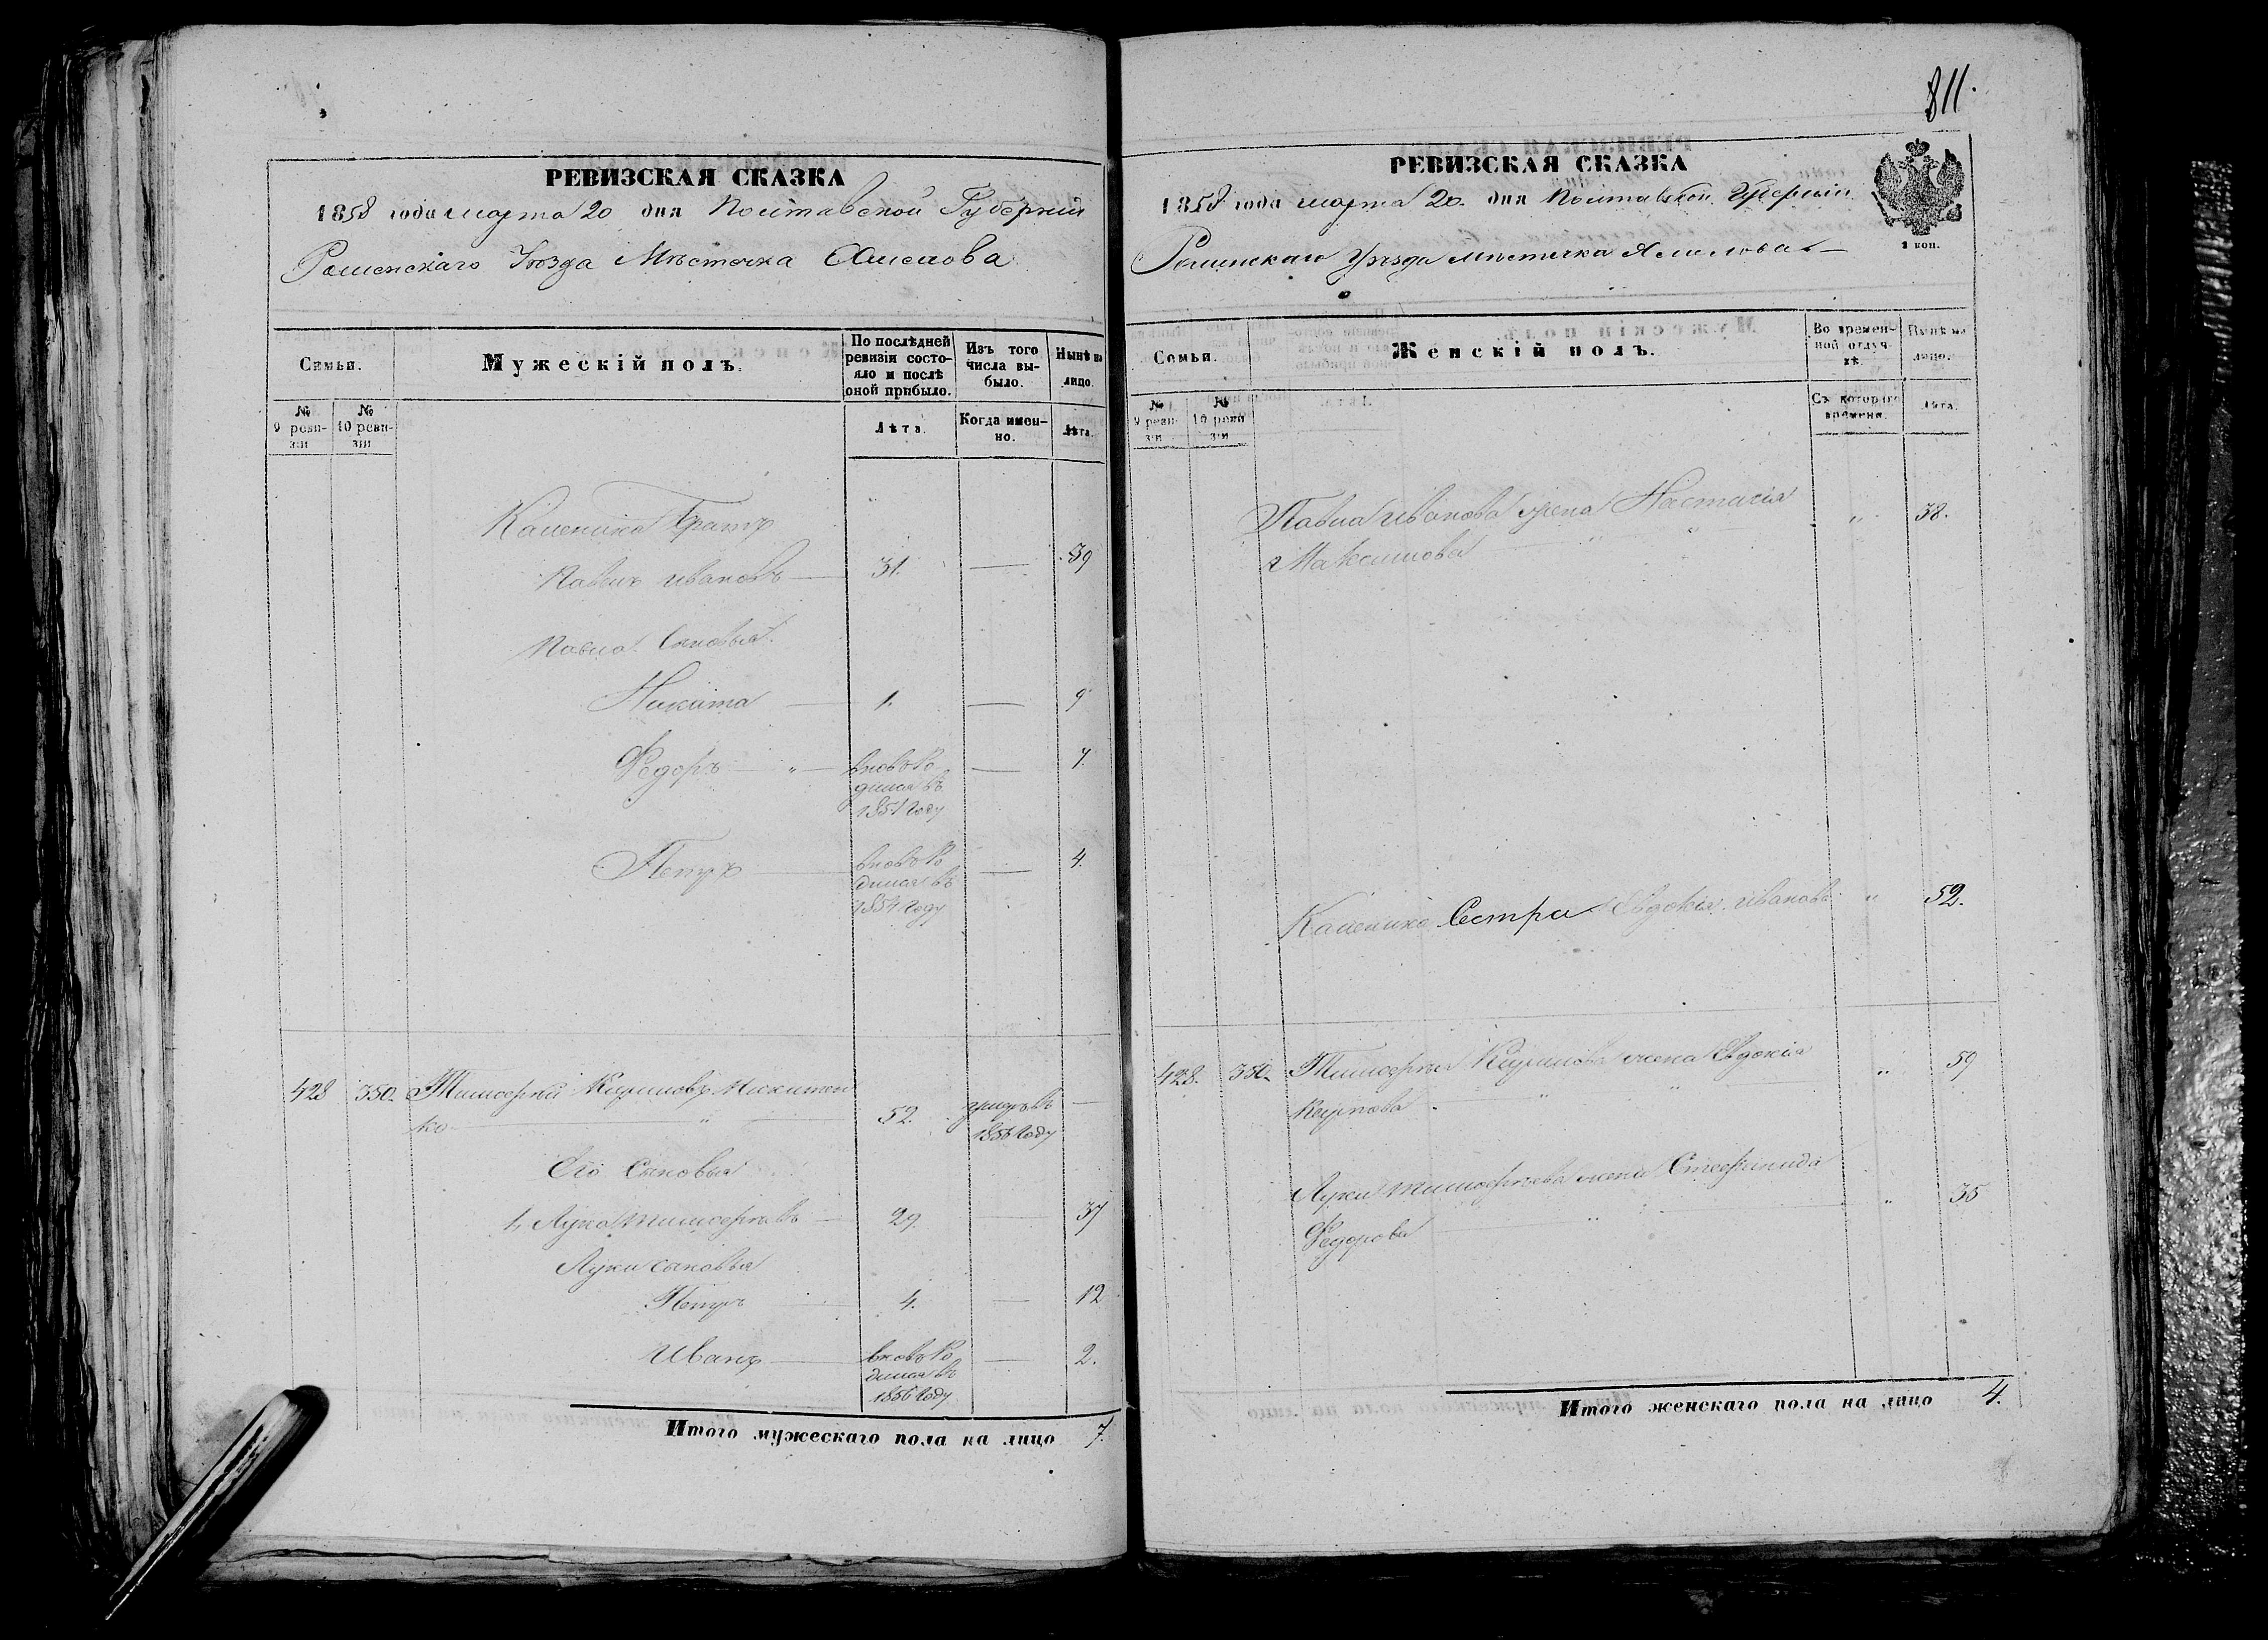 РЕВИЗСКАЯ СКАЗКА
1858 года марта 20 дня Полтавской Губерніи
Роменскаго Уѣзда Мѣстечка Смелова
Семьи.
Мужескій полъ.
По послѣдней ревизіи состояло и послѣ оной прибыло.
Изъ того числа выбыло.
Нынѣ на лицо.
№ 9 ревизіи
№ 10 ревизіи
Лѣта.
Когда именно.
Лѣта.
Каленика Братъ
Павелъ Ивановъ 31. 39
Павла Сыновья
Никита 1. 9
Федоръ " вновь Ро
дился въ
1851 году 7.
Петръ вновь Ро
дился въ
1854 году 4.
428 350. Тимофей Кириловъ Никитен
ко " 52. умеръ въ
1856 году
Его Сыновья
1, Лука Тимофеевъ 29. 37
Луки сыновья
Петръ 4. 12
Иванъ вновь Ро
дился въ
1856 году 2.
Итого мужескаго пола на лицо 7.
811.
РЕВИЗСКАЯ СКАЗКА
1858 года марта 20. дня Полтавской Губерніи
Роменскаго Уѣзда мѣстечка Смелова
коп.
Семьи.
Женскій полъ.
Во временной отлучкѣ.
Нынѣ на лицо.
№ 9 ревизіи
№ 10 ревизіи
Съ котораго времени.
Лѣта.
Павла Иванова жена Настасія " 38.
Максимова " "
Каленика Сестра Евдокія Иванова " 52.
428. 350. Тимофея Кирилова жена Евдокія " 59
Карпова "
Луки Тимофеева жена Стефанида " 35
Федорова "
Итого женскаго пола на лицо 4.